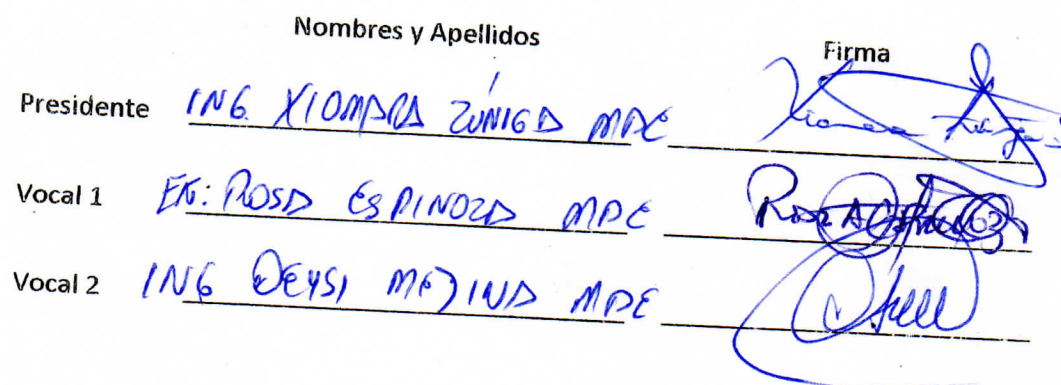 Nombres y Apellidos Firma
Presidente ING. XIOMARA ZÚNIGA MAE
Vocal 1 EN: ROSA ESPINOZA MAE
Vocal 2 ING DEYSI MEDINA MAE